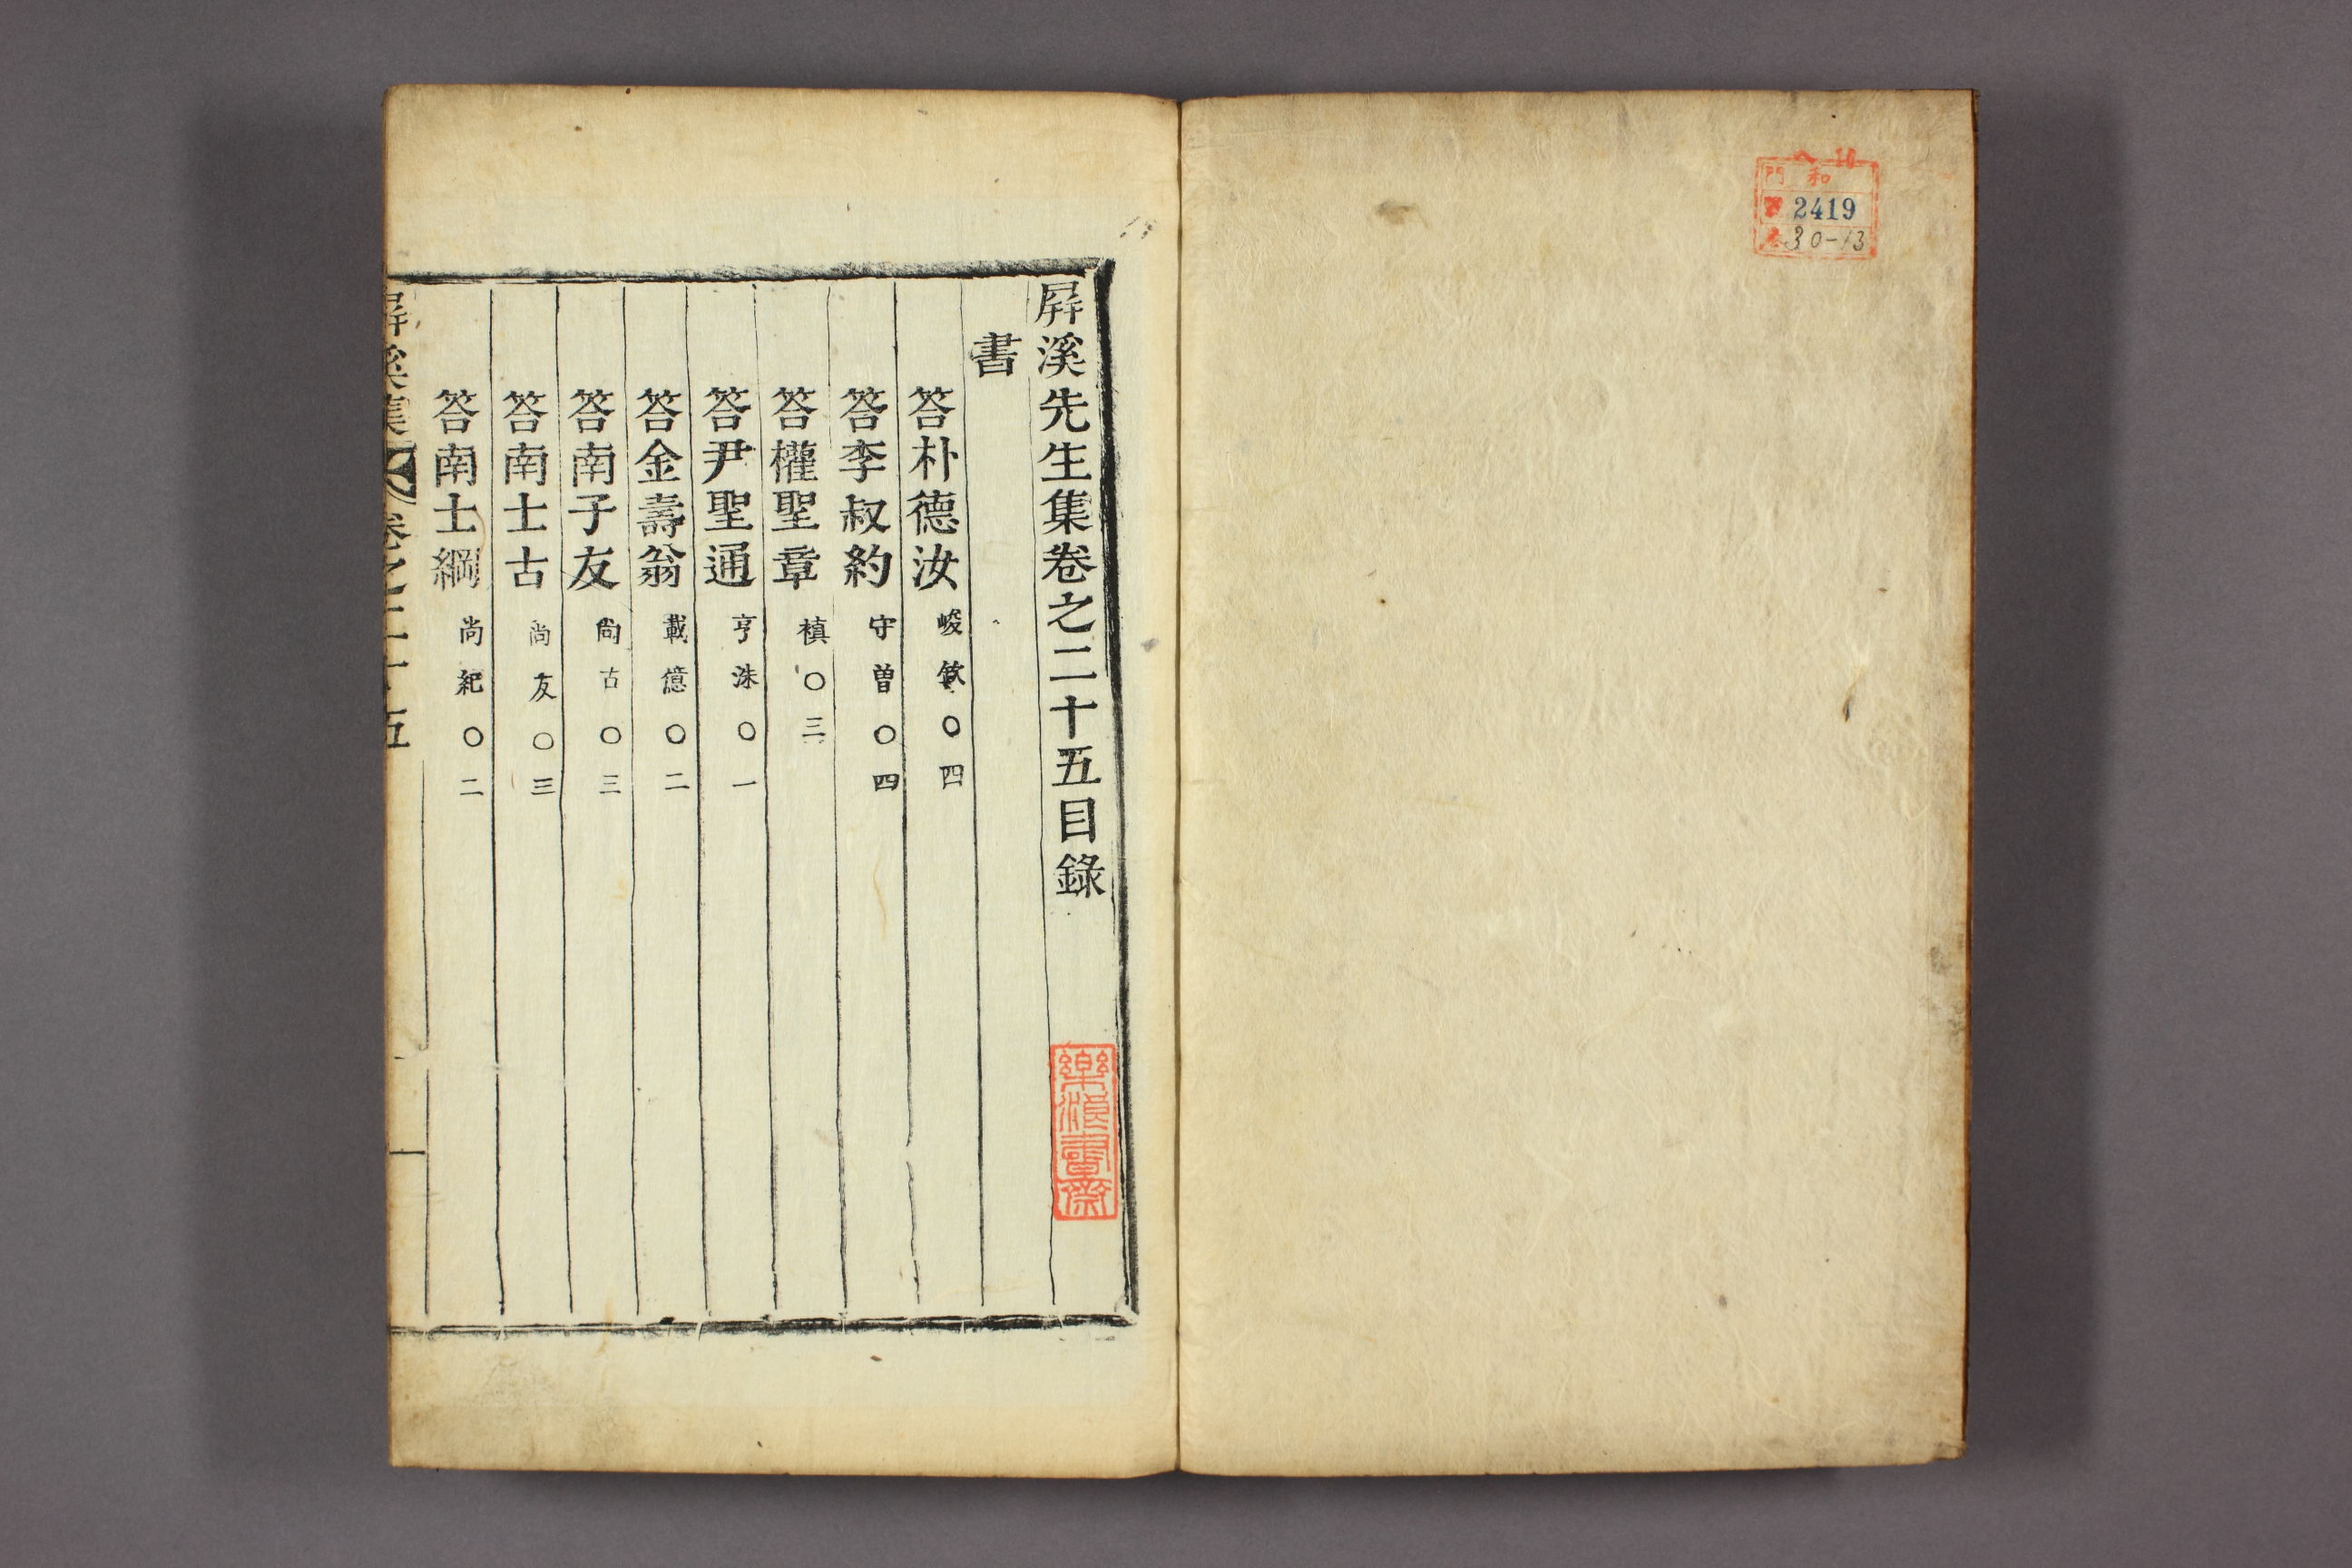 へ 16
門 和
號 2419
卷 30-13
屛溪先生集卷之二十五目錄
書
答朴德汝 峻欽〇四
答李叔約 守曾〇四
答權聖章 禎〇三
答尹聖通 亨洙〇一
答金壽翁 載億〇二
答南子友 尙古〇三
答南士古 尙友〇三
答南士綱 尙紀〇二
屛溪集 卷之二十五 一
樂浪書齋